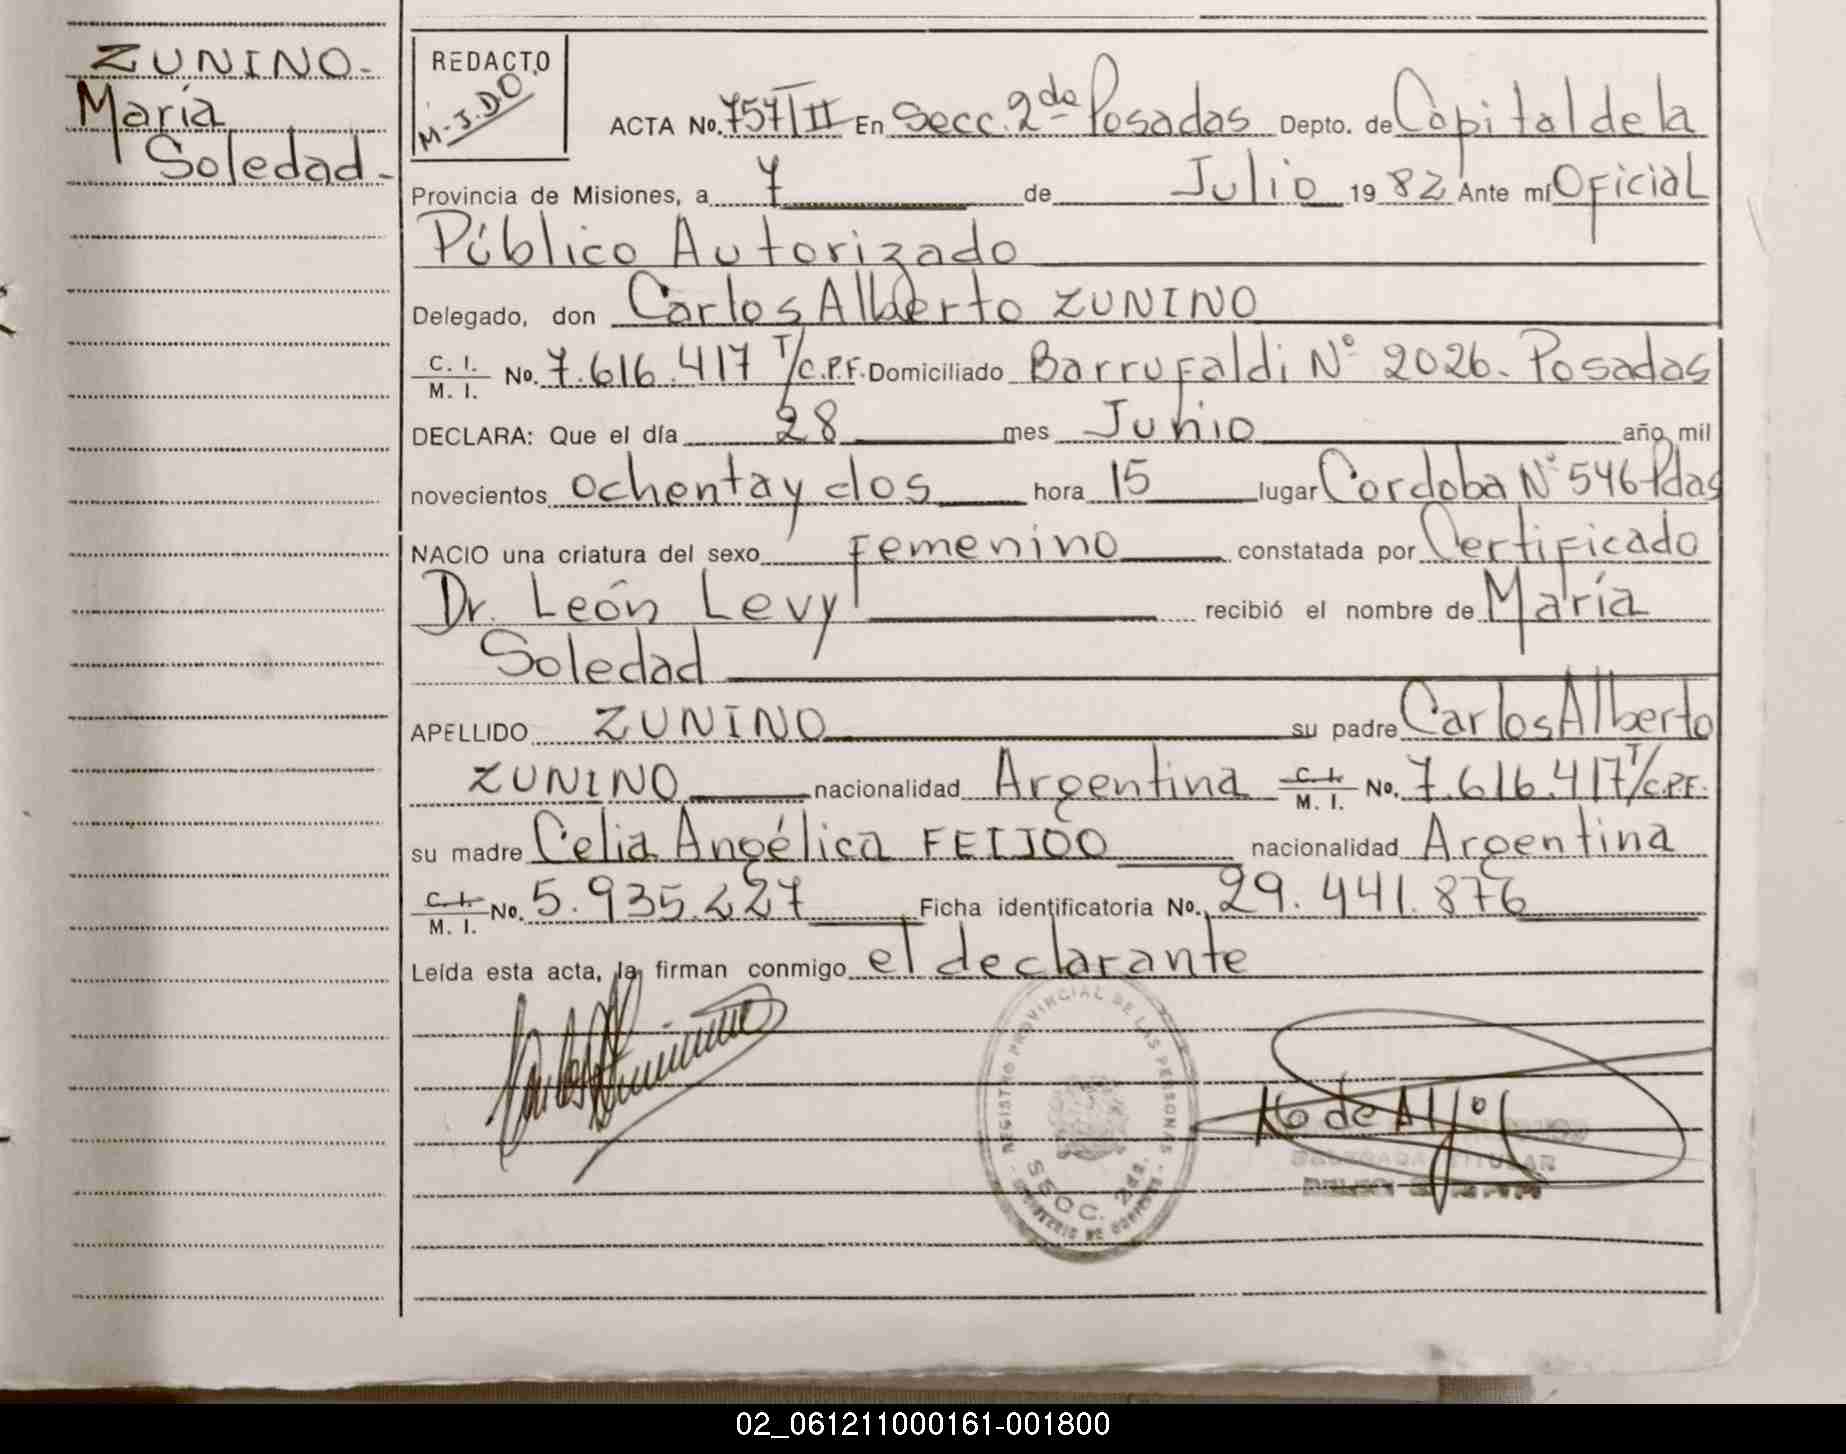 ZUNINO-
María
Soledad-
REDACTO
M-J.DO.
ACTA No. 757/II En Secc. 2da Posadas Depto. de Capital de la
Provincia de Misiones, a 7 de Julio 1982 Ante mí Oficial
Público Autorizado
Delegado, don Carlos Alberto ZUNINO
C. I. M. I. No. 7.616.417 T/C.P.F. Domiciliado Barrufaldi Nº 2026. Posadas
DECLARA: Que el día 28 mes Junio año mil
novecientos ochenta y dos hora 15 lugar Cordoba Nº 546 Pdas
NACIO una criatura del sexo Femenino constatada por Certificado
Dr. León Levy recibió el nombre de María
Soledad
APELLIDO ZUNINO su padre Carlos Alberto
ZUNINO nacionalidad Argentina C. I. M. I. No. 7.616.417 T/C.P.F.
su madre Celia Angélica FEIJOO nacionalidad Argentina
C. I. M. I. No. 5.935.227 Ficha identificatoria No. 29.441.876
Leída esta acta, la firman conmigo el declarante
REGISTRO PROVINCIAL DE LAS PERSONAS
SECC. 2da.
DELEGADA TITULAR
02_061211000161-001800